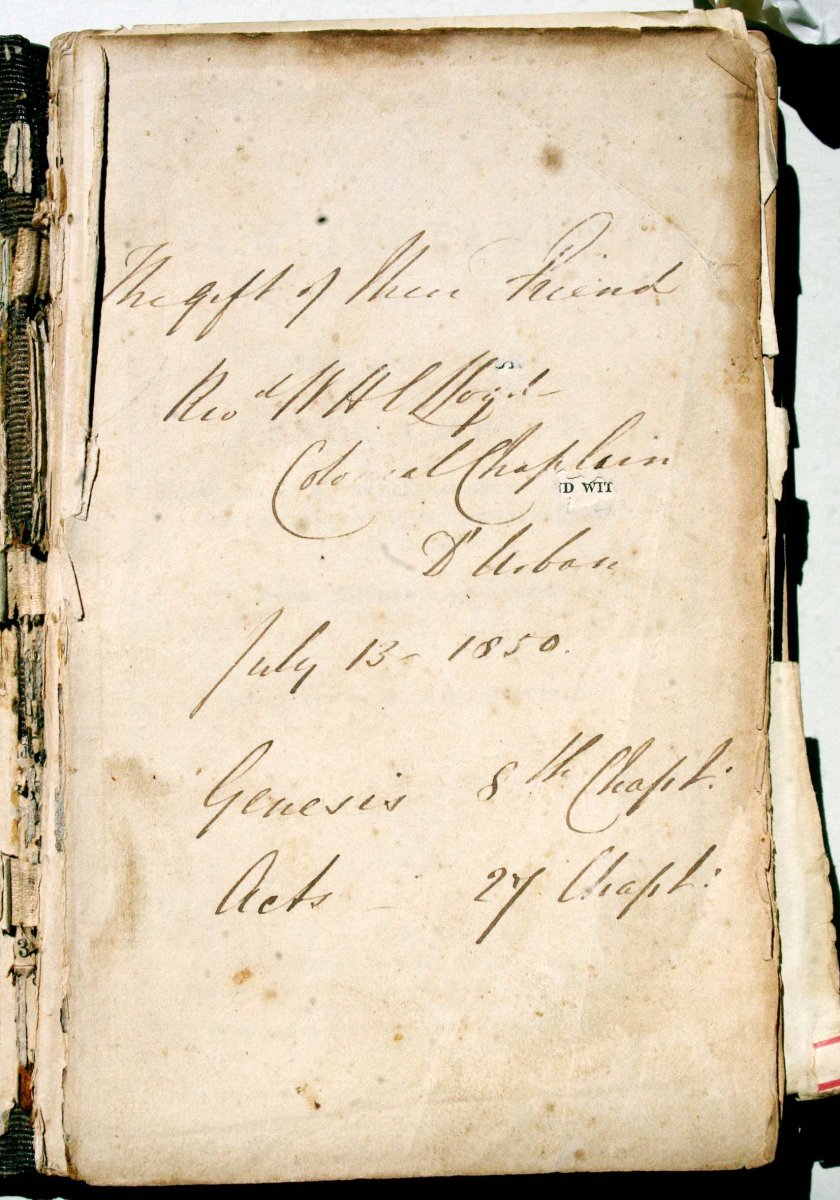 The gift of their Friend
Revd W H C Lloyd
Colonial Chaplain
ND WIT
D'Urban
July 13 - 1850.
Genesis 8th Chapt:
Acts - 27 Chapt:
3